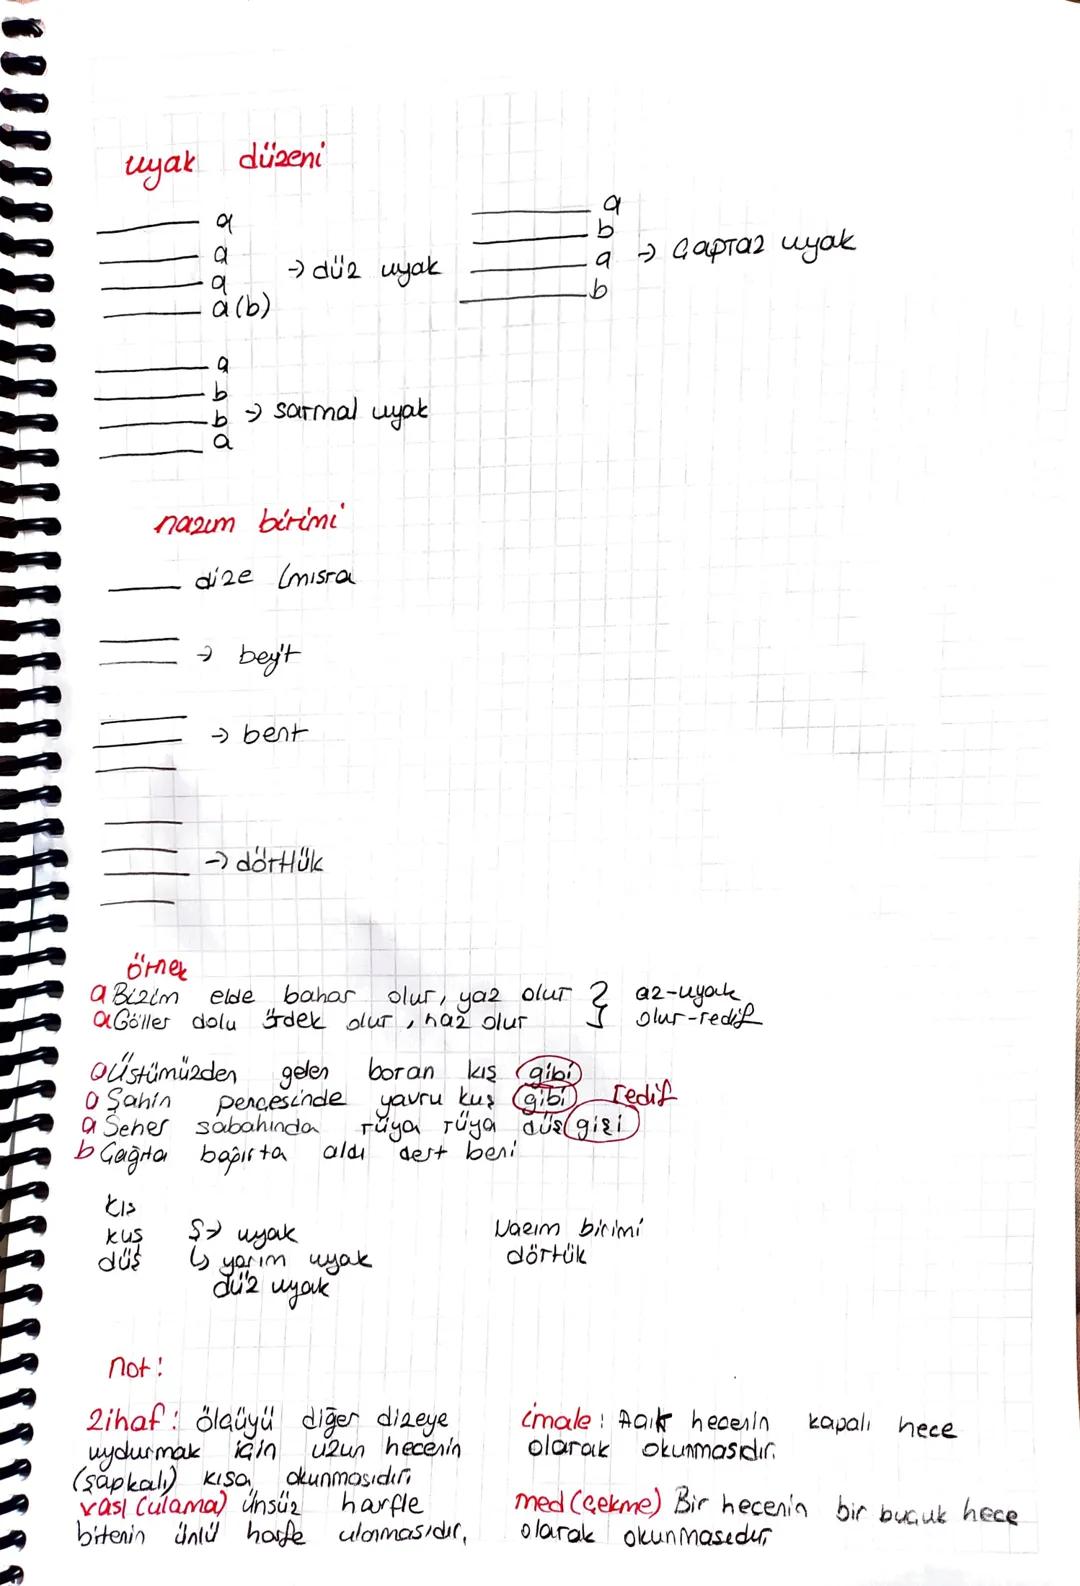 uyak düzeni
a
a
a
a(b)
→ düz uyak
a
b
a
b
→ Çapraz uyak
a
b
b
a
→ sarmal uyak
nazım birimi
dize (mısra
→ beyit
→ bent
→ dörtlük
örnek
a Bizim elde bahar olur, yaz olur
a Göller dolu ördek olur, naz olur
az-uyak
olur-redif
a Üstümüzden gelen boran kış gibi
a Şahin pençesinde yavru kuş gibi redif
a Seher sabahında rüya rüya düş gibi
b Çağrta bağırta aldı dert beni
kış
kuş
düş
Ş → uyak
↳ yarım uyak
düz uyak
Nazım birimi
dörtük
not:
Zihaf: ölçüyü diğer dizeye
uydurmak için uzun hecenin
(şapkalı) kısa okunmasıdır.
vasl (ulama) ünsüz harfle
bitenin ünlü harfe ulanmasıdır.
imale: Açık hecenin kapalı hece
olarak okunmasıdır.
med (çekme) Bir hecenin bir buçuk hece
olarak okunmasıdır.